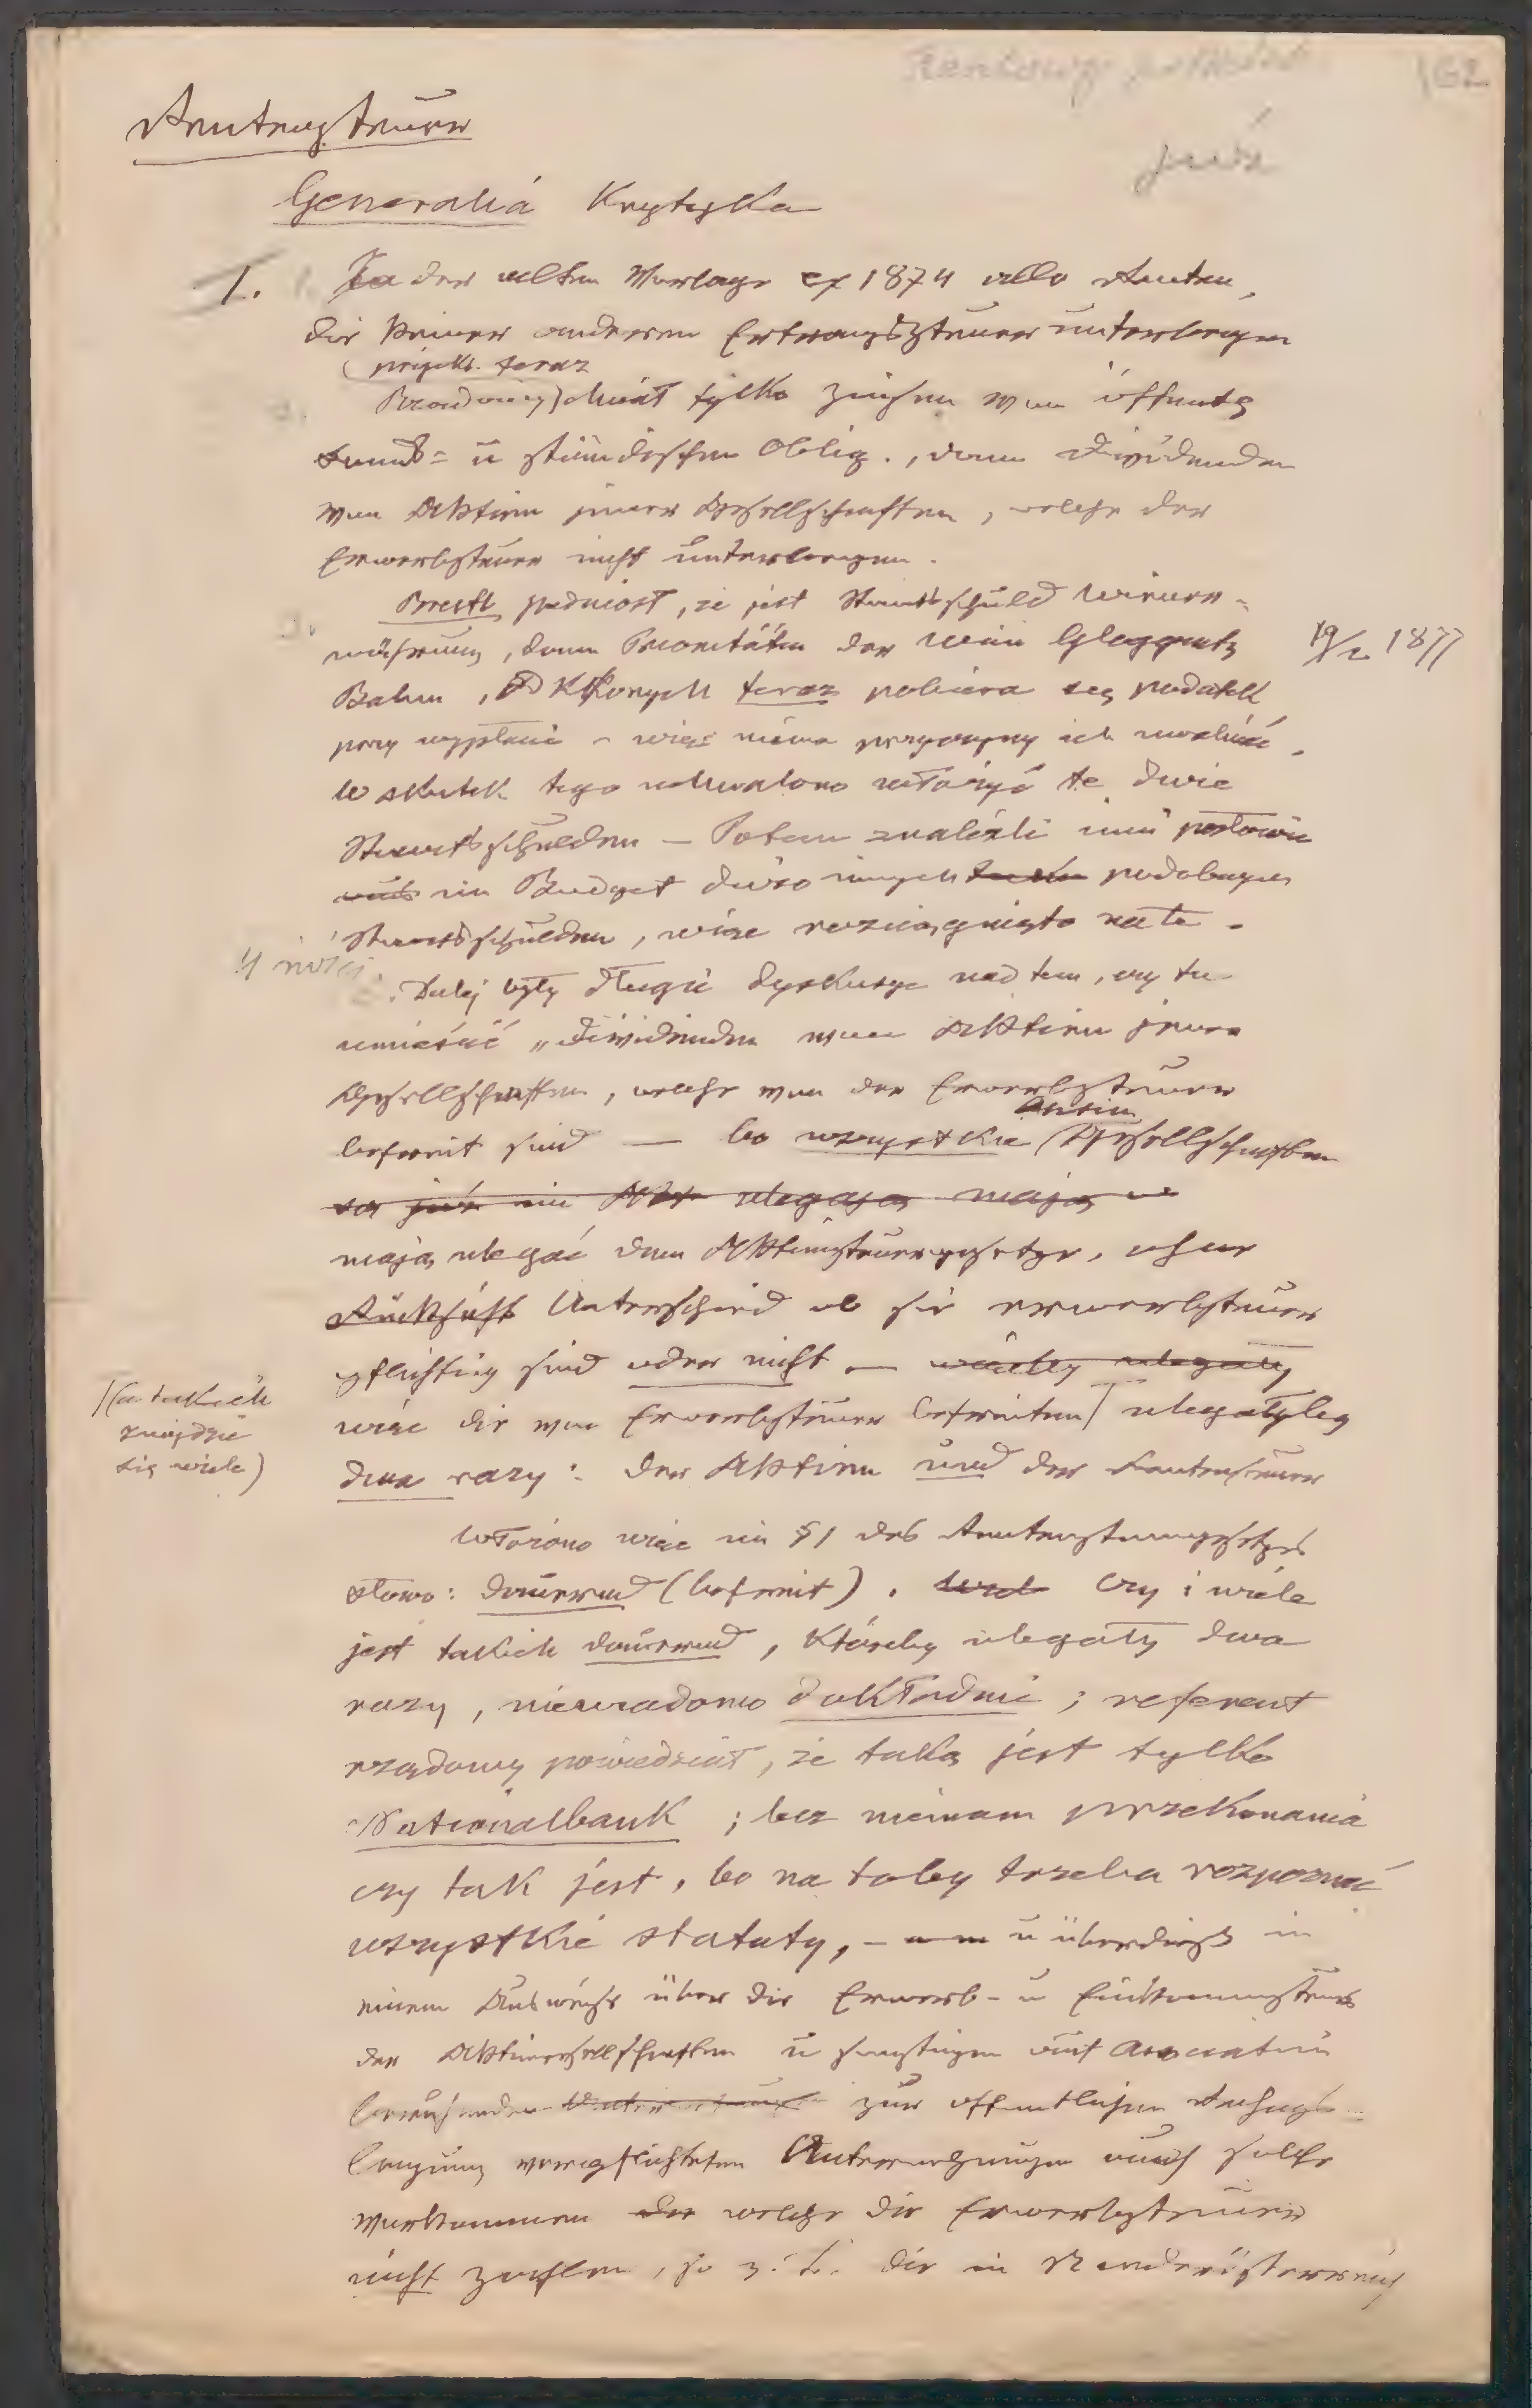 162
Rentensteuer
już
Generalia Krytyka
1. In der alten Vorlage ex 1874 alle Renten,
die keiner anderen Ertragssteuer unterliegen
(projekt. teraz
chciał tylko Zinsen von öffentl
Fonds- u ständischen Oblig., dann Dividenden
von Aktien jener Gesellschaften, welche der
Erwerbsteuer nicht unterliegen.
Brestl podniósł, że jest Staatsschuld Wiener-
währung, dann Prioritäten der Wien Gloggnitz
19/2 1877
Bahn, od których teraz pobiera się podatek
przy wypłacie – więc niema przyczyny ich uwalniać.
W skutek tego uchwalono włożyć te dwie
Staatsschulden – Potem znaleźli inni posłowie
im Budget dużo innych podobnych
Staatsschulden, więc rozciągnięto na te.
Dalej były długie dyskusye nad tem, czy tu
umieścić „Dividenden von Aktien jener
Gesellschaften, welche von der Erwerbsteuer
befreit sind — bo wszystkie Gesellschaften
są już ulegają mają
mają ulegać dem Aktiensteuergesetze, ohne
Rücksicht Unterschied ob sie erwerbsteuer
pflichtig sind oder nicht — ulegały
więc die von Erwerbsteuer befreiten ulegałyby
(a takich
znajdzie
się wiele)
dwa razy: der Aktien und der Rentensteuer
Włożono więc im §1 des Rentensteuergesetzes
słowo: dauernd (befreit). Czy i wiele
jest takich dauernd, któreby ulegały dwa
razy, niewiadomo dokładnie; referent
rządowy powiedział, że taką jest tylko
Nationalbank; lecz niemam przekonania
czy tak jest, bo na toby trzeba rozpoznać
wszystkie statuty, – u überdieß in
einem Ausweise über die Erwerb- u Einkommensteuer
der Aktiengesellschaften u sonstigen auf Association
beruhenden zur öffentlichen Rechnungs-
legung verpflichteten Unternehmungen auch solche
vorkommen welche die Erwerbsteuer
nicht zahlen, so z. B. die in Niederösterreich